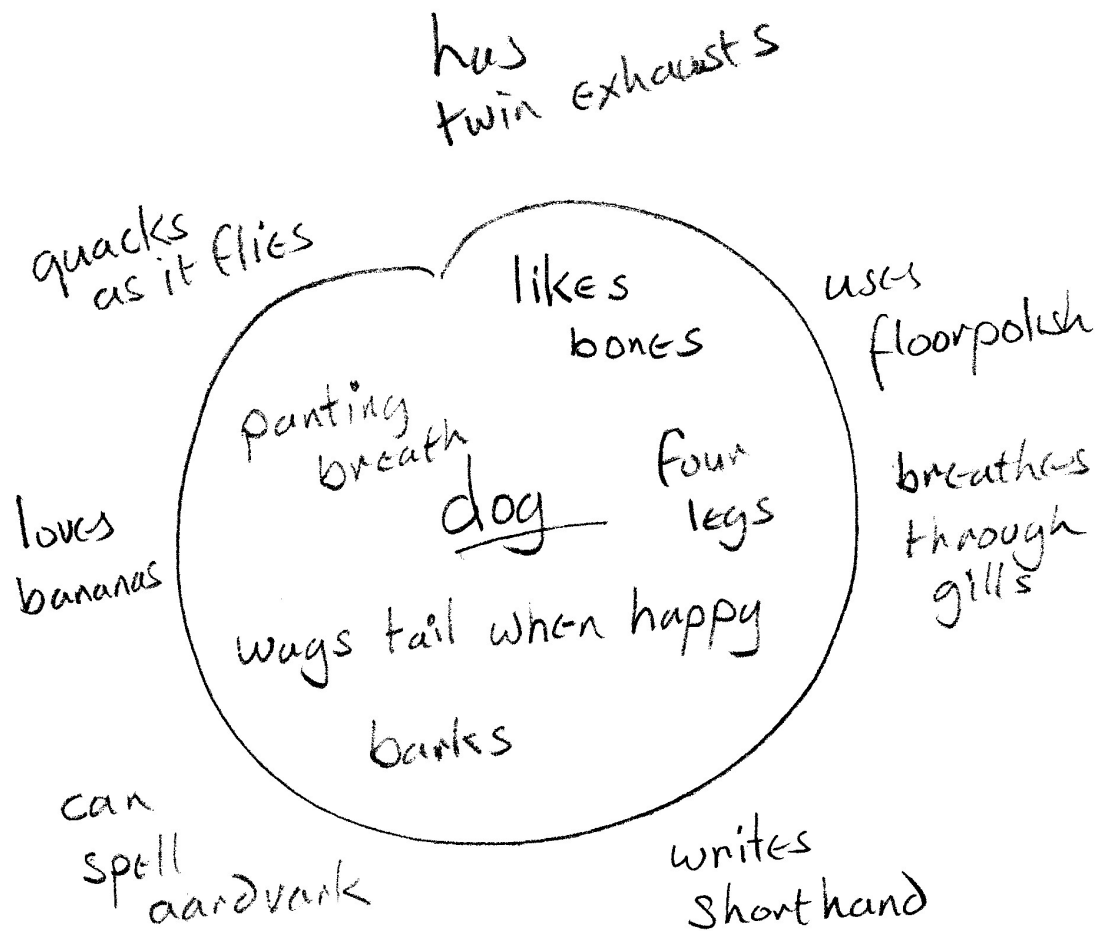 has
twin exhausts
quacks
as it flies
likes
bones
uses
floorpolish
panting
breath
four
legs
dog
breathes
through
gills
loves
bananas
wags tail when happy
barks
can
spell
aardvark
writes
shorthand